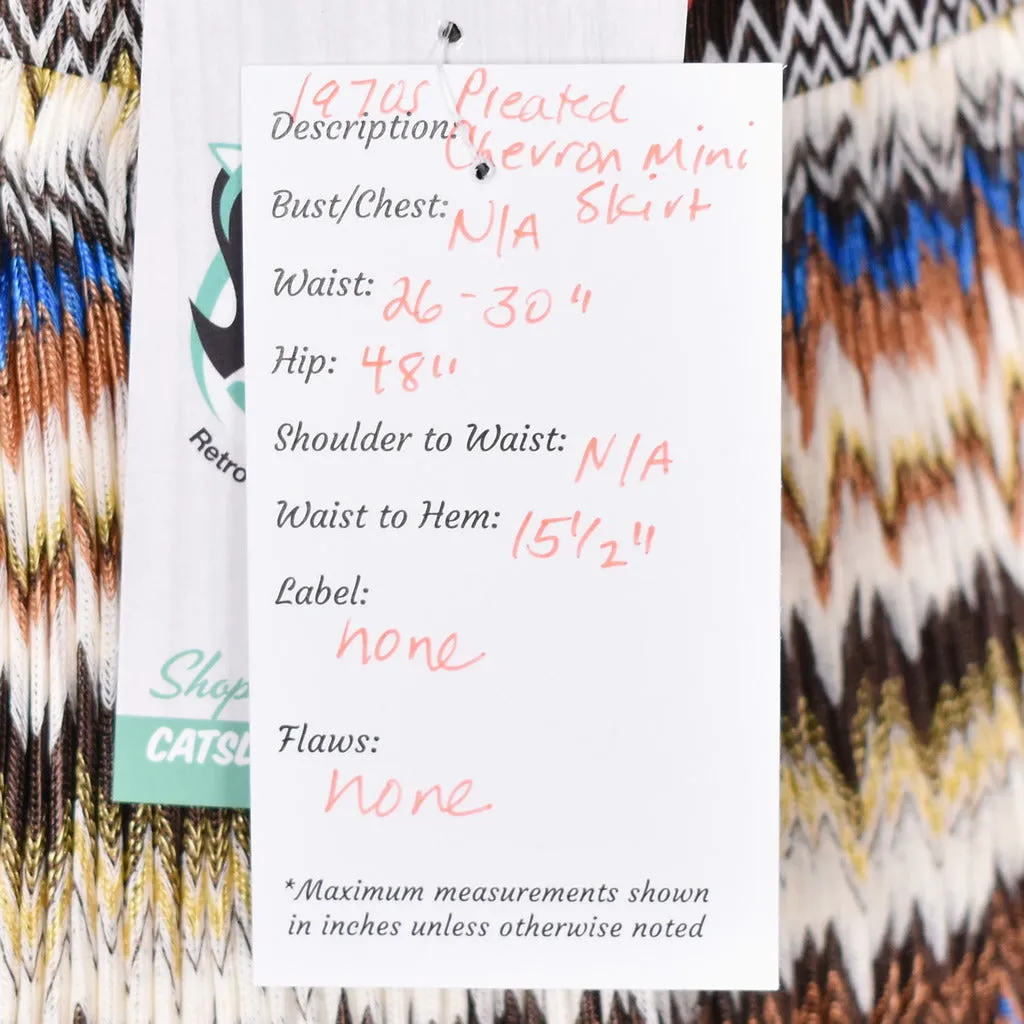 1970s Pleated
Description: Chevron Mini
Skirt
Bust/Chest: N/A
Waist: 26-30"
Hip: 48"
Shoulder to Waist: N/A
Waist to Hem: 15 1/2"
Label:
none
Flaws:
none
*Maximum measurements shown
in inches unless otherwise noted
Retro
Shop